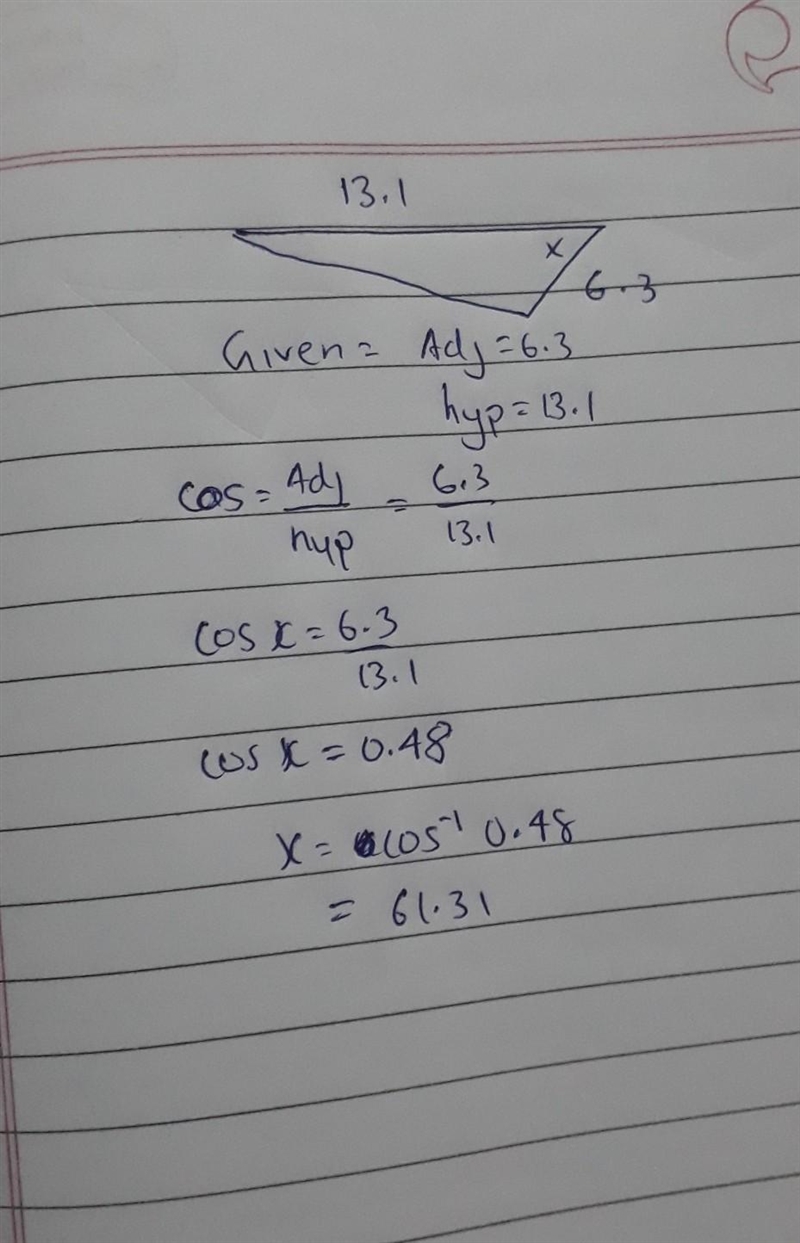 13.1
x
6.3
Given = Adj = 6.3
hyp = 13.1
cos = Adj/hyp = 6.3/13.1
cos x = 6.3/13.1
cos x = 0.48
x = cos⁻¹ 0.48
= 61.31